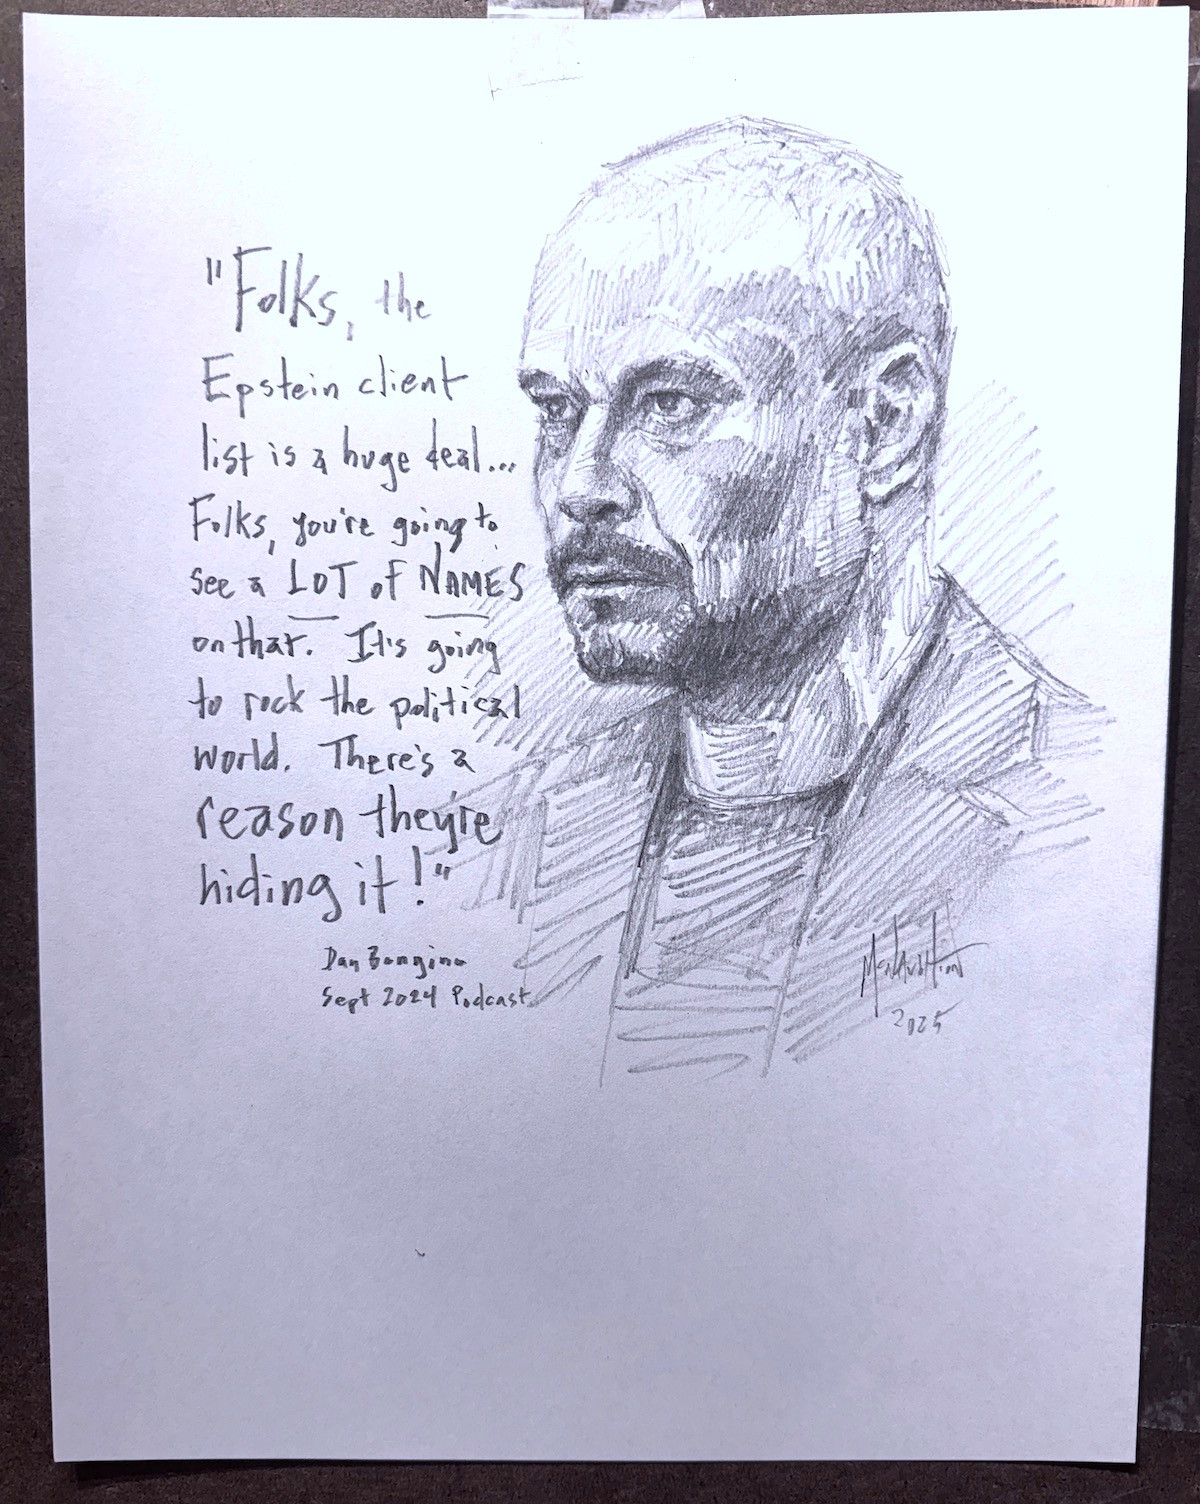 "Folks, the
Epstein client
list is a huge deal...
Folks, you're going to
see a LOT of NAMES
on that. It's going
to rock the political
world. There's a
reason they're
hiding it!"
Dan Bongino
Sept 2024 Podcast
2025